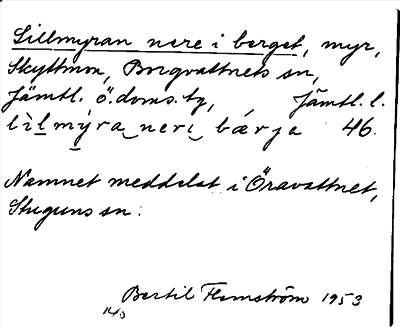 Lillmyran nere i berget, myr,
Skyttmon, Borgvattnets sn,
Jämtl. ö. doms. tg, Jämtl. l.
lìl̲ m̲ýra‿neri‿ bærja 46.
Namnet meddelat i Öravattnet,
Stuguns sn.
Bertil Flemström 1953